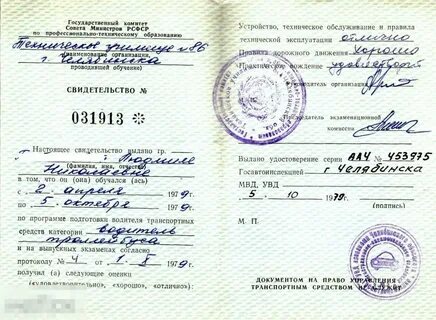 Государственный комитет
Совета Министров РСФСР
по профессионально-техническому образованию
Техническое училище №86
(наименование организации,
г. Челябинска
проводившей обучение)
СВИДЕТЕЛЬСТВО №
031913 ✶
Настоящее свидетельство выдано гр.
Людмиле
Николаевне
(фамилия, имя, отчество)
в том, что он (она) обучался (ась)
с 2 апреля 1979г.
по 5 октября 1979г.
по программе подготовки водителя транспортных
средств категории водитель
троллейбуса
и на выпускных экзаменах согласно
протоколу № 4 1. X 1979г.
получил (а) следующие оценки
(«удовлетворительно», «хорошо», «отлично»):
Устройство, техническое обслуживание и правила
технической эксплуатации отлично
Правила дорожного движения хорошо
Практическое вождение удовлетвор.
Председатель организации
Председатель экзаменационной
комиссии
Выдано удостоверение серии ААЧ № 453975
Госавтоинспекцией г Челябинска
МВД, УВД
5 10 1979г.
(подпись)
М. П.
ДОКУМЕНТОМ НА ПРАВО УПРАВЛЕНИЯ
ТРАНСПОРТНЫМ СРЕДСТВОМ НЕ СЛУЖИТ